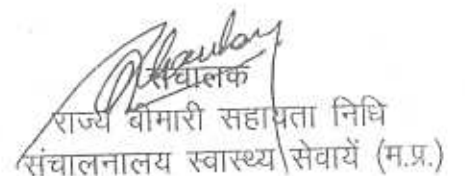 संचालक
राज्य बीमारी सहायता निधि
संचालनालय स्वास्थ्य सेवायें (म.प्र.)